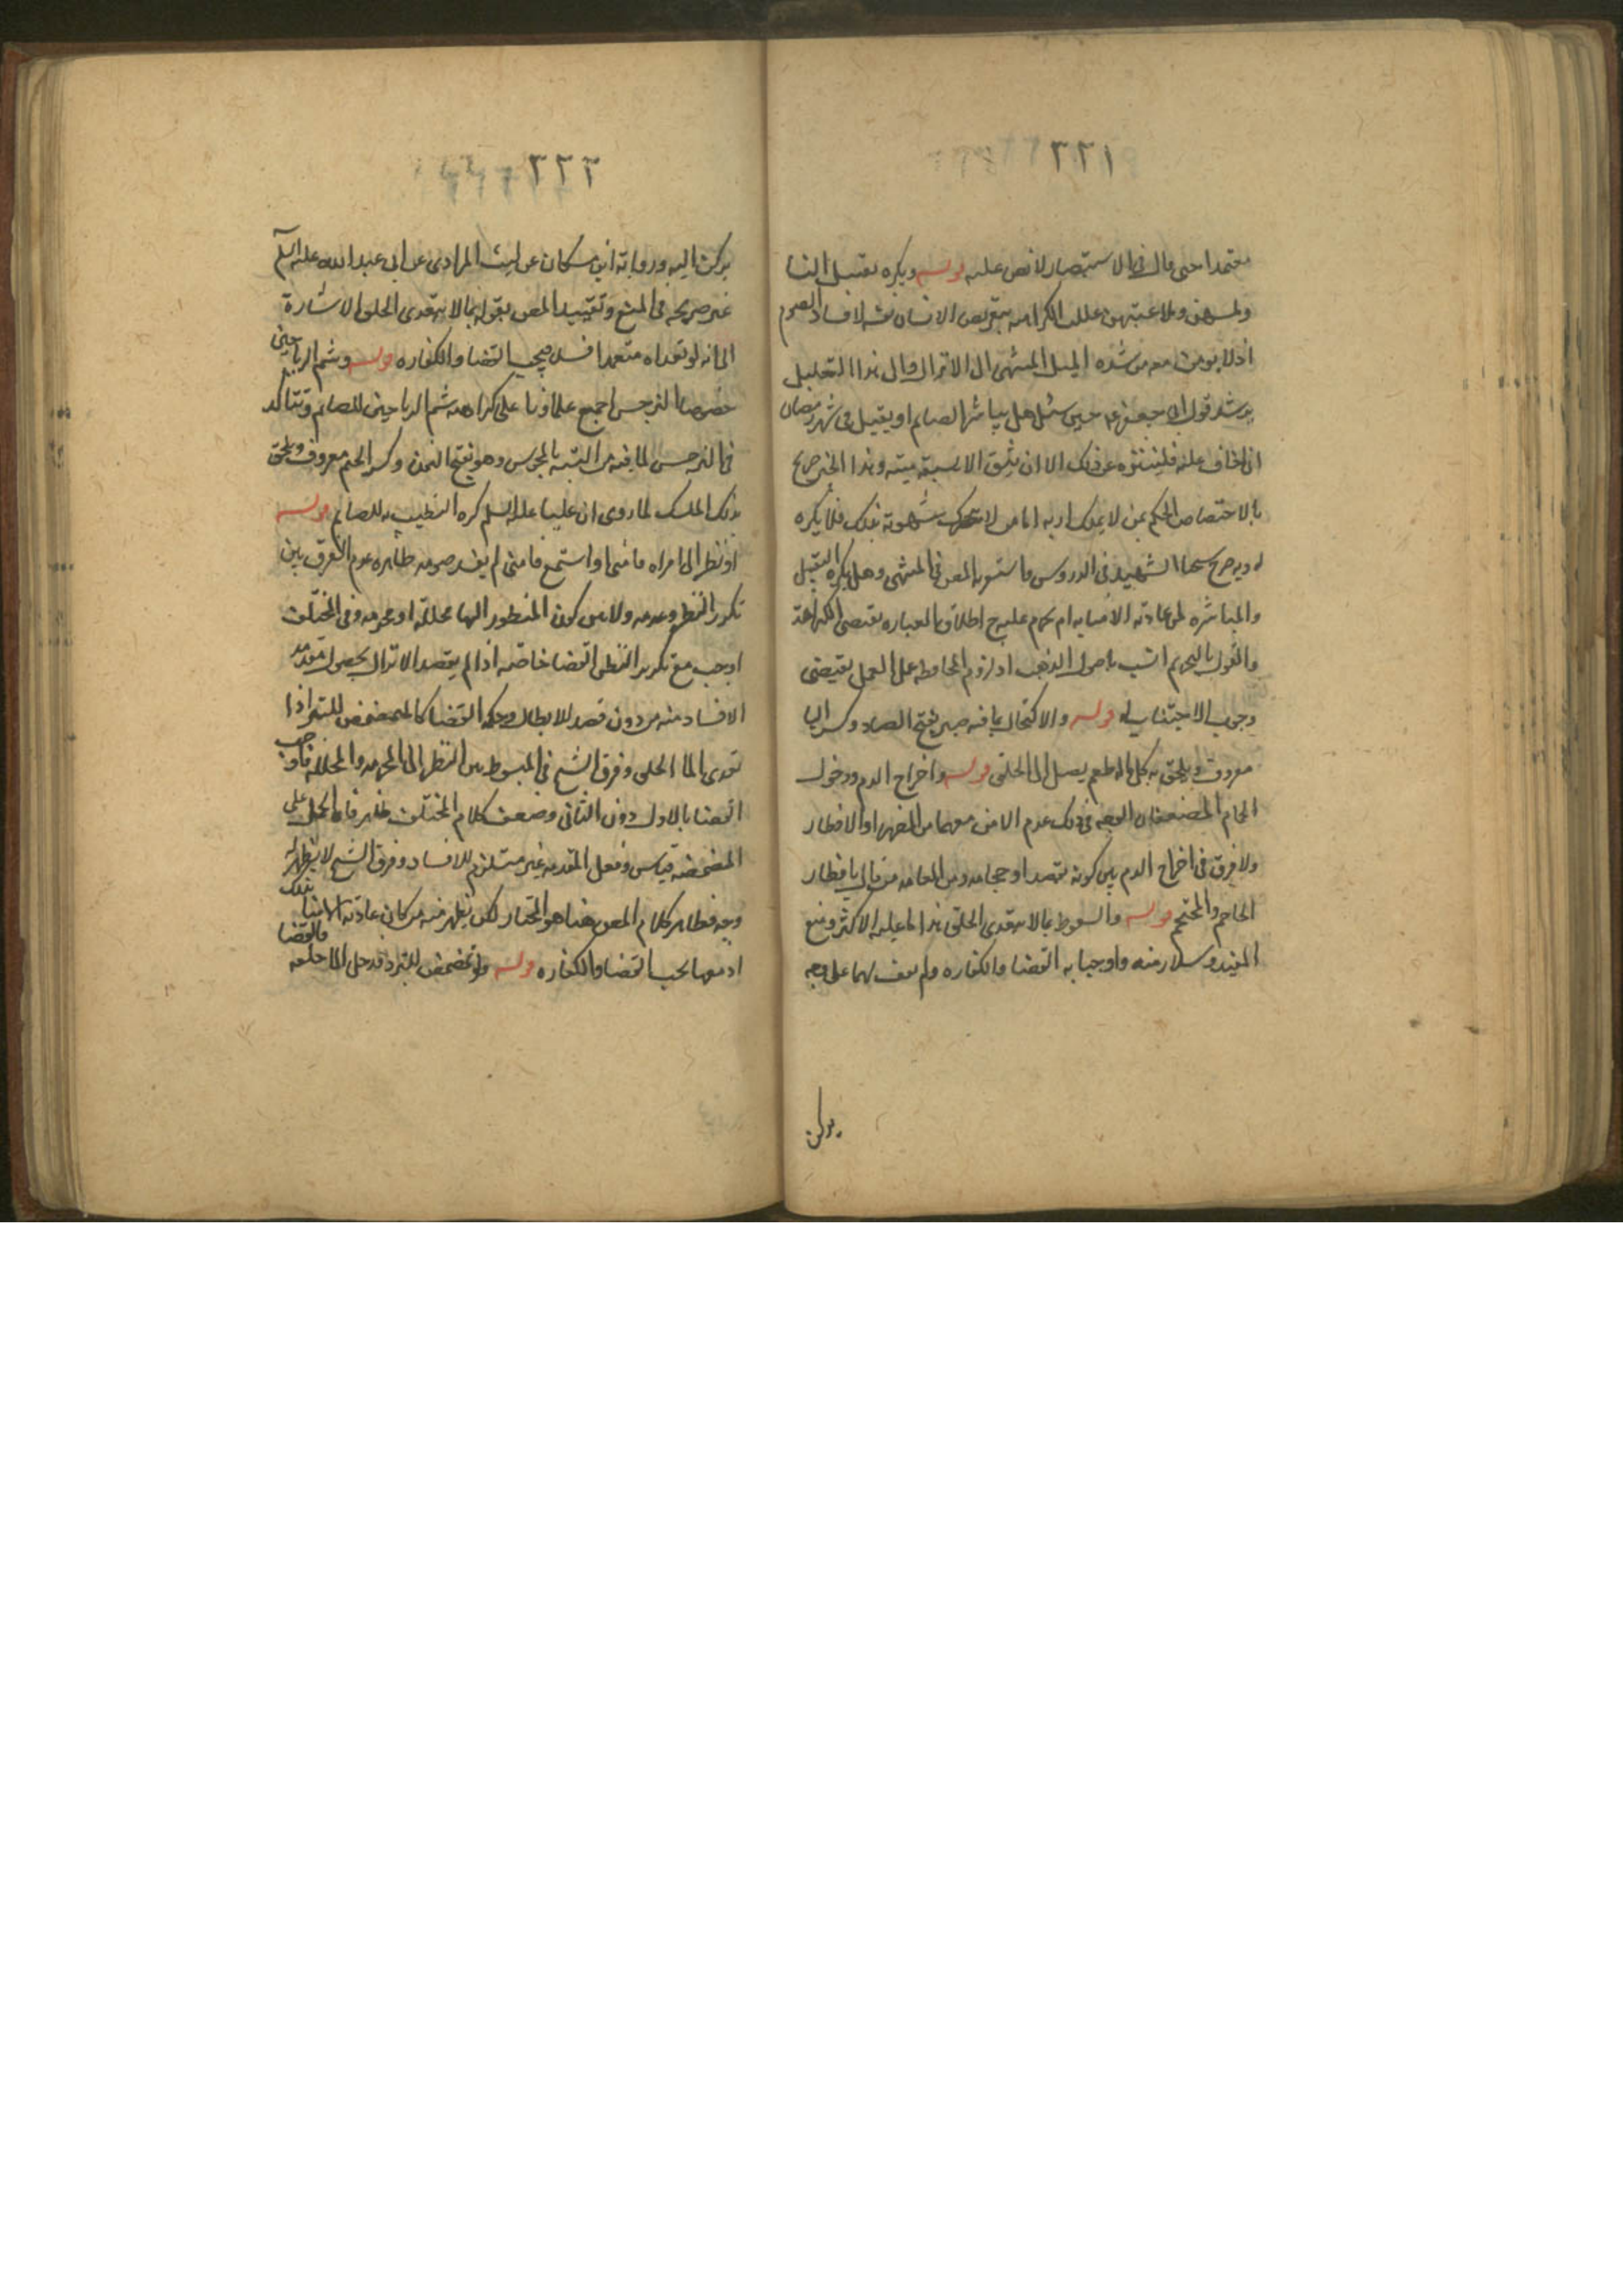 ٢٢١
معتمدا حتى قال في الاستبصار لا نص عليه قوله ويكره تقبيل النسا
ولمسهن وملاعبتهن عللت الكراهه بتعريض الانسان نفسه لافساد الصوم
اذ لا يومن معه من شده الميل المنتهى الى الانزال وال هذا التعليل
يرشد قول ابي جعفر ع حين سئل هل يباشر الصايم او يقبل في شهر رمضان
اني اخاف عليه فليتنزه عن ذلك الا ان يثق الا يسبقه منيه وهذا الخبر صريح
بالاختصاص الحكم بمن لا يملك اربه اما من لا تتحرك شهوته بذلك فلا يكره
له وبه صرح الشهيد في الدروس واستقربه المص في المنتهى وهل يكره التقبيل
والمباشره لمن عادته الامنا به ام يحرم عليه ح اطلاق العباره يقتضى الكراهة
والقول بالتحريم انسب باصول المذهب اذ لزوم المحافظه على العمل يقتضى
وجوب الاجتناب له قوله والاكتحال بما فيه صبر بفتح الصاد وكسر البا
معروف ويلحق به كل ماله طعم يصل الى الحلق قوله واخراج الدم ودخول
الحمام المضعفان الوجه في ذلك عدم الامن معهما من الضرر او الافطار
ولا فرق في اخراج الدم بين كونه بفصد او حجامه ومن العامه من قال بافطار
الحاجم والمحتجم قوله والسعوط بما لا يتعدى الحلق هذا ما عليه الاكثر ومنع
المفيد وسلار منه واوجبا به القضا والكفاره ولم نقف لهما على وجه
يركن
٢٢٢
يركن اليه ورواية ابن مسكان عن ليث المرادى عن ابى عبد الله عليه السلم
غير صريحه في المنع وتقييد المص بقوله بما لا يتعدى الحلق الاشارة
الى انه لو تعداه متعمدا افسد فيجب القضا والكفاره قوله وشم الرياحين
خصوصا النرجس اجمع علماونا على كراهه شم الرياحين للصايم وتتاكد
في النرجس لما فيه من التشبه بالمجوس وهو بفتح النون وكسر الجيم معروف ويلحق
بذلك المسك لما روى ان عليا عليه السلم كره التطيب به للصايم قوله
او نظر الى امراه فامنى او استمع فامنى لم يفسد صومه ظاهره عدم الفرق بين
تكرر النظر وعدمه ولا بين كون المنظور اليها محللة او محرمه وفى المختلف
اوجب مع تكرير النظر القضا خاصه اذا لم يقصد الانزال بحصول مقدمه
الافساد منه من دون قصد للابطال وحكمه القضا كالمتمضمض للتبرد اذا
تعدى الما الحلق وفرق الشيخ في المبسوط بين النظر الى المحرمه والمحلله فاوجب
القضا بالاول دون الثاني وضعف كلام المختلف ظاهر فان الحمل على
المضمضه قياس وفعل المقدمه غير مستلزم للافساد وفرق الشيخ لا يظهر له
وجه فظاهر كلام المص هنا هو المختار لكن يظهر منه من كان عادته الامنا بذلك فالقضا
او معها يجب القضا والكفاره قوله ولو تمضمض للتبرد فدخل الما حلقه